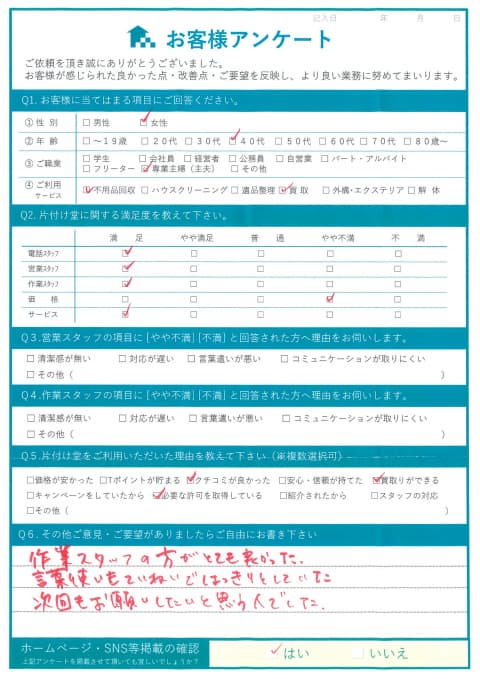 記入日 年 月 日
お客様アンケート
ご依頼を頂き誠にありがとうございました。
お客様が感じられた良かった点・改善点・ご要望を反映し、より良い業務に努めてまいります。
Q1. お客様に当てはまる項目にご回答ください。
①性別 □男性 ☑女性
②年齢 □〜19歳 □20代 □30代 ☑40代 □50代 □60代 □70代 □80歳〜
③ご職業 □学生 □会社員 □経営者 □公務員 □自営業 □パート・アルバイト
□フリーター ☑専業主婦（主夫） □その他
④ご利用サービス ☑不用品回収 □ハウスクリーニング □遺品整理 ☑買取 □外構・エクステリア □解体
Q2. 片付け堂に関する満足度を教えて下さい。
満足 やや満足 普通 やや不満 不満
電話スタッフ ☑ □ □ □ □
営業スタッフ ☑ □ □ □ □
作業スタッフ ☑ □ □ □ □
価格 □ □ □ ☑ □
サービス ☑ □ □ □ □
Q3.営業スタッフの項目に[やや不満][不満]と回答された方へ理由をお伺いします。
□清潔感が無い □対応が遅い □言葉遣いが悪い □コミュニケーションが取りにくい
□その他（ ）
Q4.作業スタッフの項目に[やや不満][不満]と回答された方へ理由をお伺いします。
□清潔感が無い □対応が遅い □言葉遣いが悪い □コミュニケーションが取りにくい
□その他（ ）
Q5.片付け堂をご利用いただいた理由を教えて下さい（※複数選択可）
□価格が安かった □Tポイントが貯まる ☑クチコミが良かった □安心・信頼が持てた ☑買取りができる
□キャンペーンをしていたから ☑必要な許可を取得している □紹介されたから □スタッフの対応
□その他（ ）
Q6. その他ご意見・ご要望がありましたらご自由にお書き下さい
作業スタッフの方がとても良かった.
言葉使いもていねいではっきりとしていた
次回もお願いしたいと思う人でした.
ホームページ・SNS等掲載の確認 ☑はい □いいえ
上記アンケートを掲載させて頂いても宜しいでしょうか？